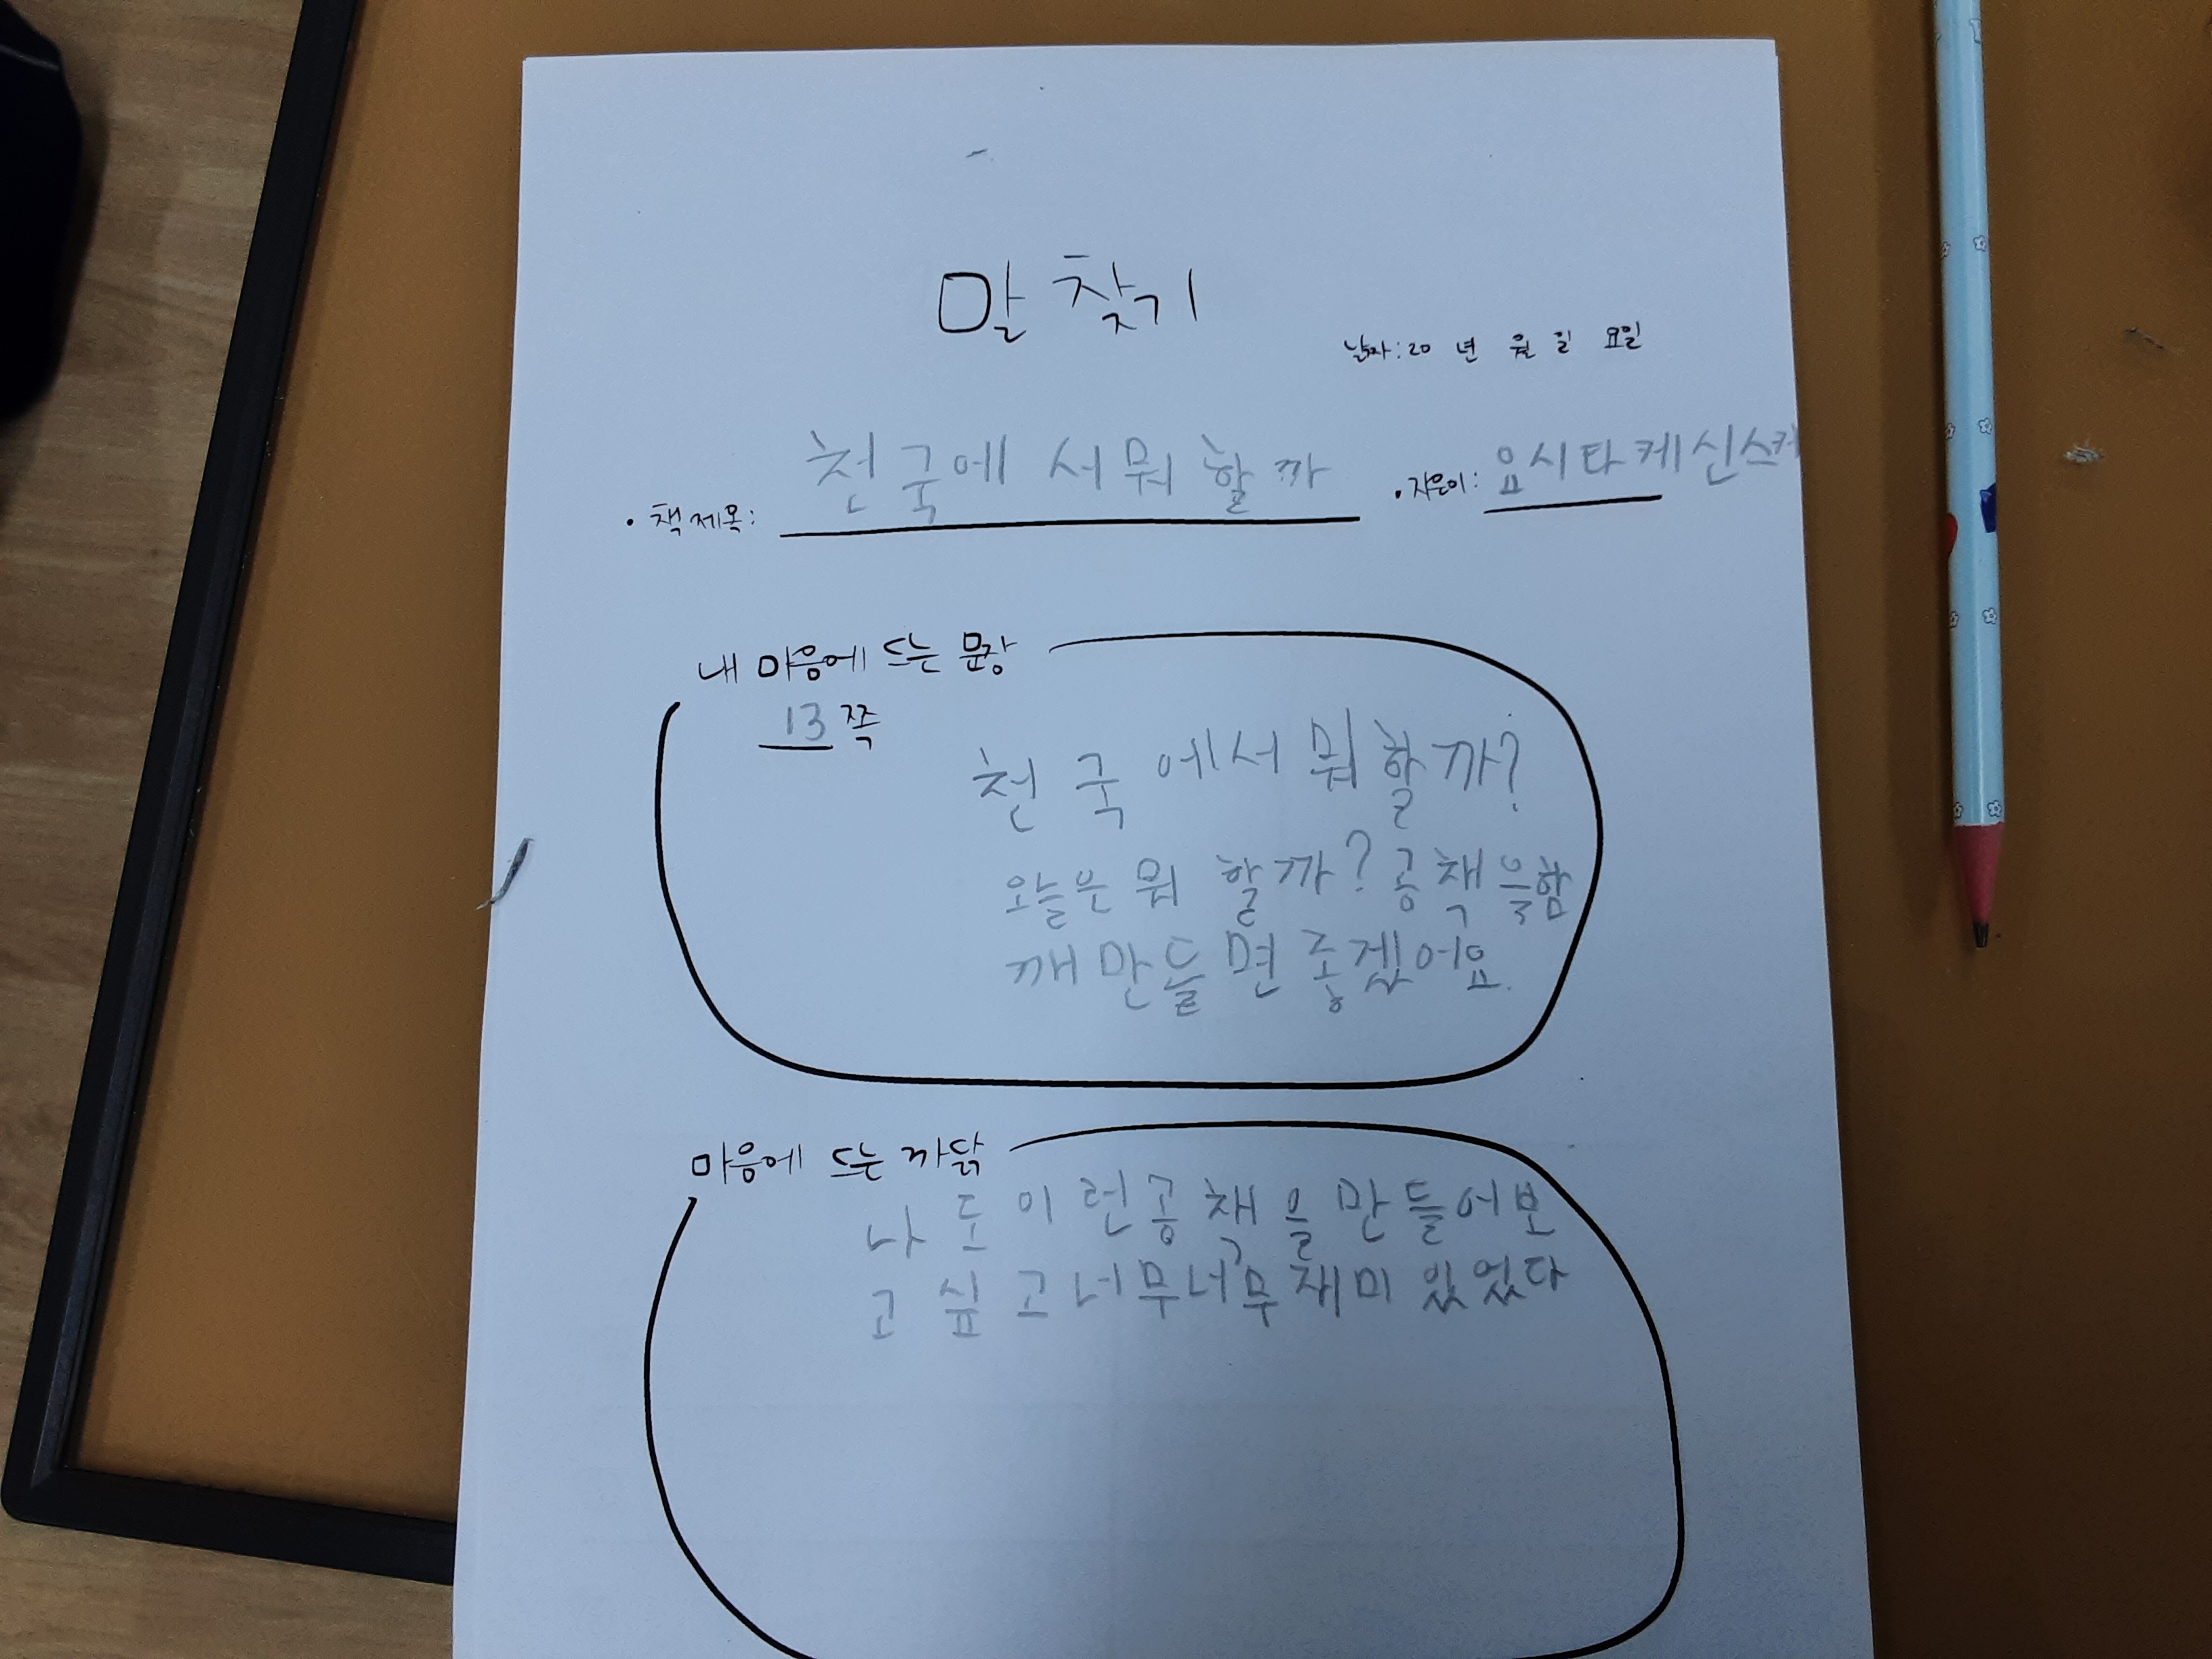 말 찾기
날짜: 20 년 월 일 요일
• 책 제목: 천국에 서뭐 할 까 • 지은이: 요시타케신스케
내 마음에 드는 문장
13 쪽
천 국 에서 뭐할까?
오늘은 뭐 할까? 공책을함
깨 만들면 좋겠어요.
마음에 드는 까닭
나 도 이 런공 책을 만들어보
고 싶 고 너무너무 재미 있었다